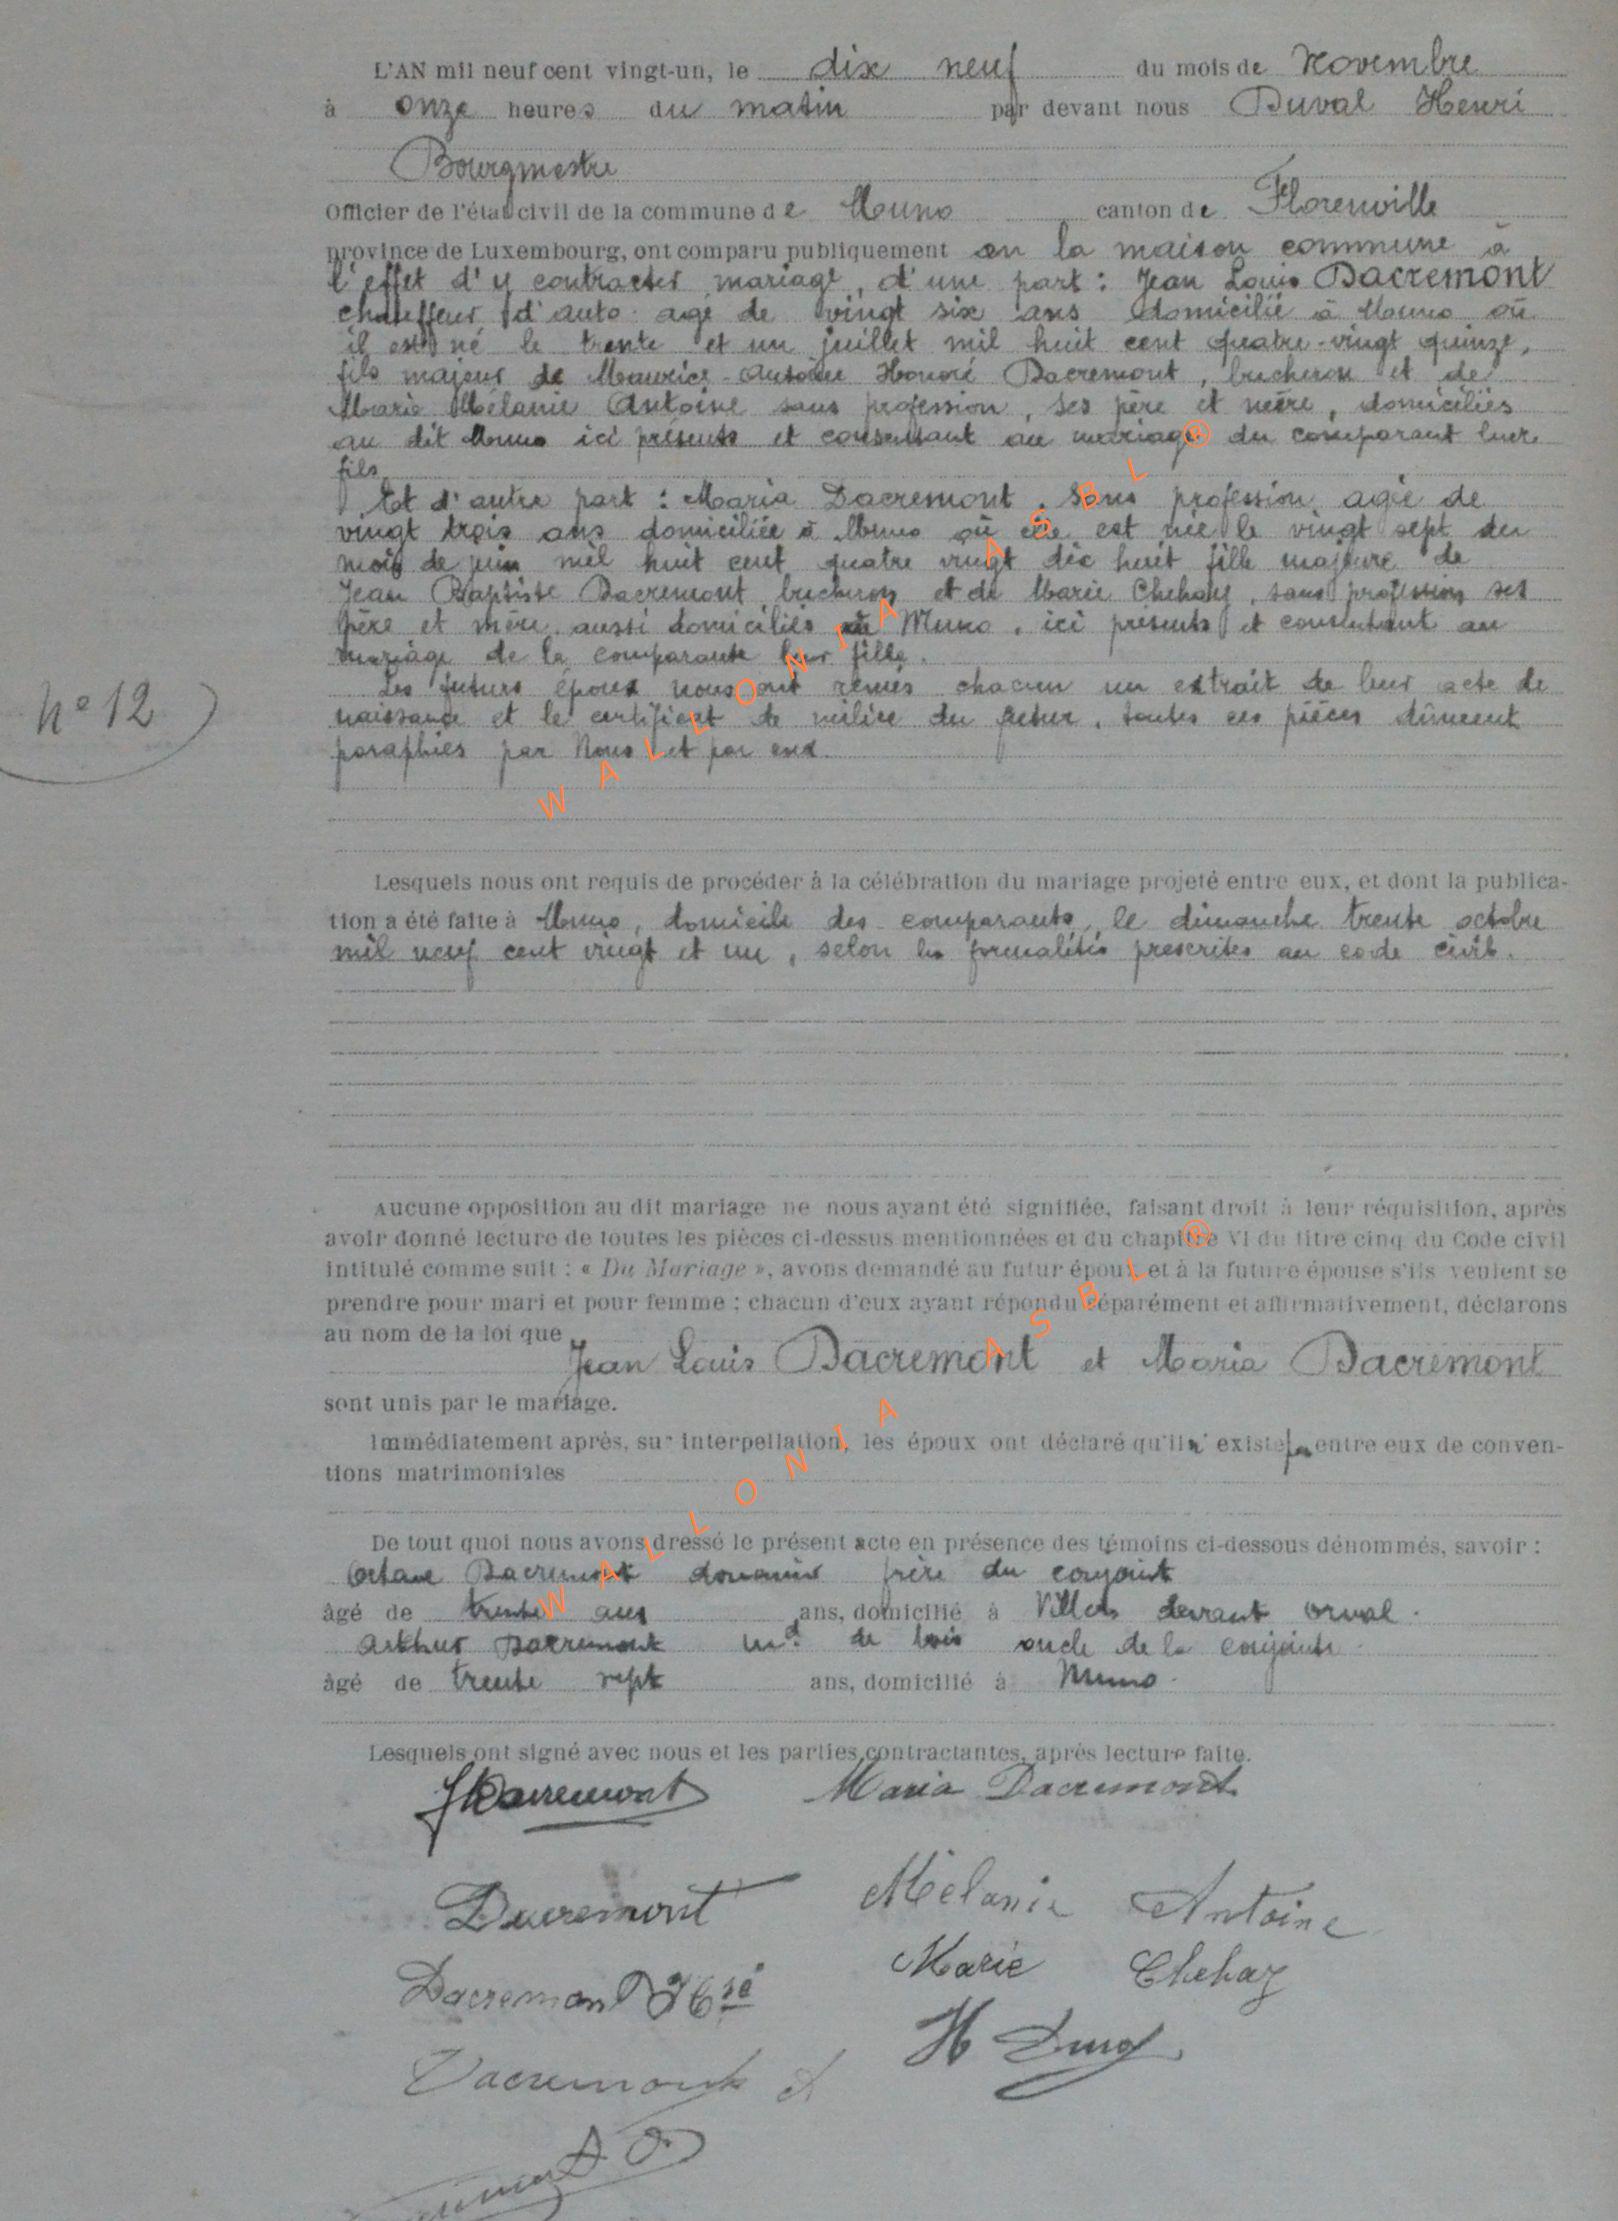 L'AN mil neuf cent vingt-un, le dix neuf du mois de Novembre
à onze heures du matin par devant nous Duval Henri
Bourgmestre
Officier de l'état civil de la commune de Muno canton de Florenville
province de Luxembourg, ont comparu publiquement en la maison commune à
l'effet d'y contracter mariage, d'une part : Jean Louis Dacremont
chauffeur d'auto agé de vingt six ans domicilié à Muno où
il est né le trente et un juillet mil huit cent quatre-vingt quinze,
fils majeur de Maurice-Antoine Honoré Dacremont, bucheron et de
Marie Mélanie Antoine sans profession, ses père et mère, domiciliés
au dit Muno ici présents et consentant au mariage du comparant leur
fils
Et d'autre part : Maria Dacremont, sans profession, agée de
vingt trois ans domiciliée à Muno où elle est née le vingt sept du
mois de juin mil huit cent quatre vingt dix huit fille majeure de
Jean Baptiste Dacremont bucheron et de Marie Chehay, sans profession ses
père et mère, aussi domiciliés à Muno, ici présents et consentant au
mariage de la comparante leur fille.
Les futurs époux nous ont remis chacun un extrait de leur acte de
naissance et le certificat de milice du futur, toutes ces pièces dûment
paraphiés par Nous et par eux.
N° 12
Lesquels nous ont requis de procéder à la célébration du mariage projeté entre eux, et dont la publica-
tion a été faite à Muno, domicile des comparants, le dimanche trente octobre
mil neuf cent vingt et un, selon les formalités prescrites au code civil.
Aucune opposition au dit mariage ne nous ayant été signifiée, faisant droit à leur réquisition, après
avoir donné lecture de toutes les pièces ci-dessus mentionnées et du chapitre VI du titre cinq du Code civil
intitulé comme suit : « Du Mariage », avons demandé au futur époux et à la future épouse s'ils veulent se
prendre pour mari et pour femme ; chacun d'eux ayant répondu séparément et affirmativement, déclarons
au nom de la loi que
Jean Louis Dacremont et Maria Dacremont
sont unis par le mariage.
Immédiatement après, sur interpellation, les époux ont déclaré qu'il n'existe pas entre eux de conven-
tions matrimoniales
De tout quoi nous avons dressé le présent acte en présence des témoins ci-dessous dénommés, savoir :
Octave Dacremont douanier frère du conjoint
âgé de trente ans ans, domicilié à Villers devant orval.
Arthur Dacremont md. de bois oncle de la conjointe.
âgé de trente sept ans, domicilié à Muno.
Lesquels ont signé avec nous et les parties contractantes, après lecture faite.
JLDacremont Maria Dacremont
Dacremont Mélanie Antoine
Dacremont Hré Marie Chehay
H Duval
Dacremont A
WALLONIA ASBL ®
WALLONIA ASBL ®